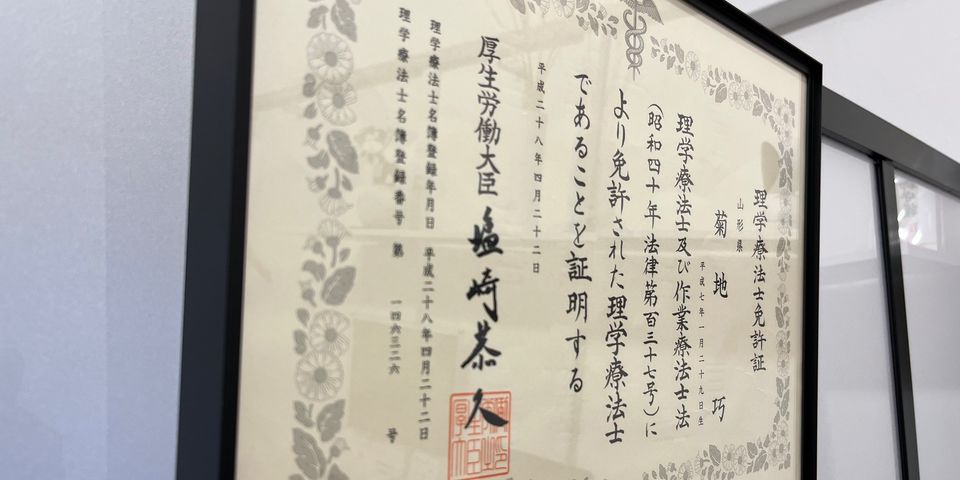 理学療法士免許証
山形県
菊地 巧
平成七年一月二十九日生
理学療法士及び作業療法士法
(昭和四十年法律第百三十七号)に
より免許された理学療法士
であることを証明する
平成二十八年四月二十二日
厚生労働大臣 塩崎恭久
理学療法士名簿登録年月日 平成二十八年四月二十二日
理学療法士名簿登録番号 第 一四六三二六 号